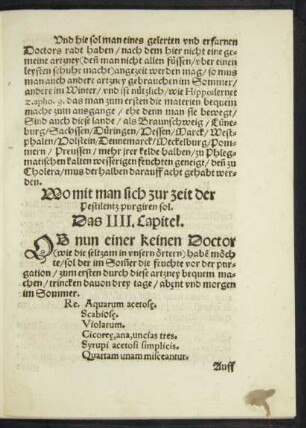 Vnd hie sol man eines gelerten vnd erfarnen
Doctors radt haben / nach dem hier nicht eine ge-
meine artzney (deñ man nicht allen füssen / vber einen
leysten schuhe macht) angezeit werden mag / so mus
man auch andere artzney gebrauchen im Sommer /
andere im Winter / vnd ist nützlich / wie Hippo. lernet
2. apho. 9. das man zum ersten die materien bequem
mache zum ausgange / ehe denn man sie bewegt /
Sind auch diese lande / als Braunschweig / Lüne-
burg / Sachssen / Düringen / Hessen / Marck / West-
phalen / Holstein / Dennemarck / Meckelburg / Pom-
mern / Preussen / mehr jrer kelde halben / zu Phleg-
matischen kalten wesserigen feuchten geneigt / deñ zu
Cholera / mus derhalben darauff acht gehabt wer-
den.
Wo mit man sich zur zeit der
Pestilentz purgiren sol.
Das IIII. Capitel.
OB nun einer keinen Doctor
(wie die seltzam in vnsern örtern) habẽ möch
te / sol der im Som̃er die feuchte vor der pur-
gation / zum ersten durch diese artzney bequem ma-
chen / trincken dauon drey tage / abent vnd morgen
im Sommer.
Re. Aquarum acetosę.
Scabiosę.
Violarum.
Cicoreę, ana, uncias tres.
Syrupi acetosi simplicis.
Quartam unam misceantur.
Auff